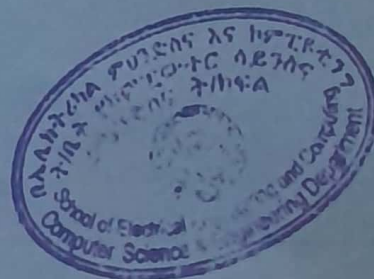 በኤሌክትሪካል ምህንድስና እና ኮምፒዩቲንግ
ት/ቤት የኮምፒውተር ሳይንስና
ት/ክፍል
School of Electrical and Computing
Computer Science Engineering Department